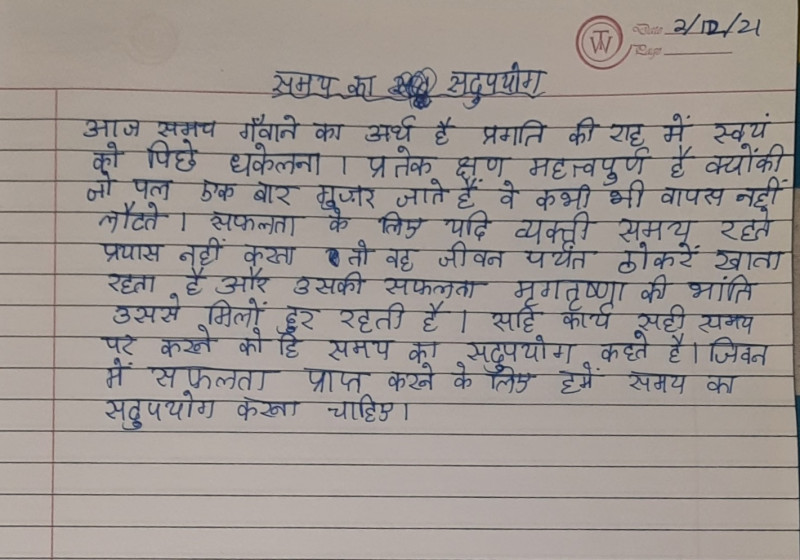 Date 2/12/21
Page
समय का सदुपयोग
आज समय गँवाने का अर्थ है प्रगति की राह में स्वयं
को पिछे धकेलना । प्रतेक क्षण महत्त्वपुर्ण है क्योंकी
जो पल एक बार गुजर जाते हैं वे कभी भी वापस नहीं
लौटते । सफलता के लिए यदि व्यक्ती समय रहते
प्रयास नहीं करता तो वह जीवन पर्यंत ठोकरें खाता
रहता है और उसकी सफलता मृगतृष्णा की भांति
उससे मिलों दुर रहती है । सहि कार्य सही समय
पर करने को हि समय का सदुपयोग कहते है । जिवन
में सफलता प्राप्त करने के लिए हमें समय का
सदुपयोग करना चाहिए ।